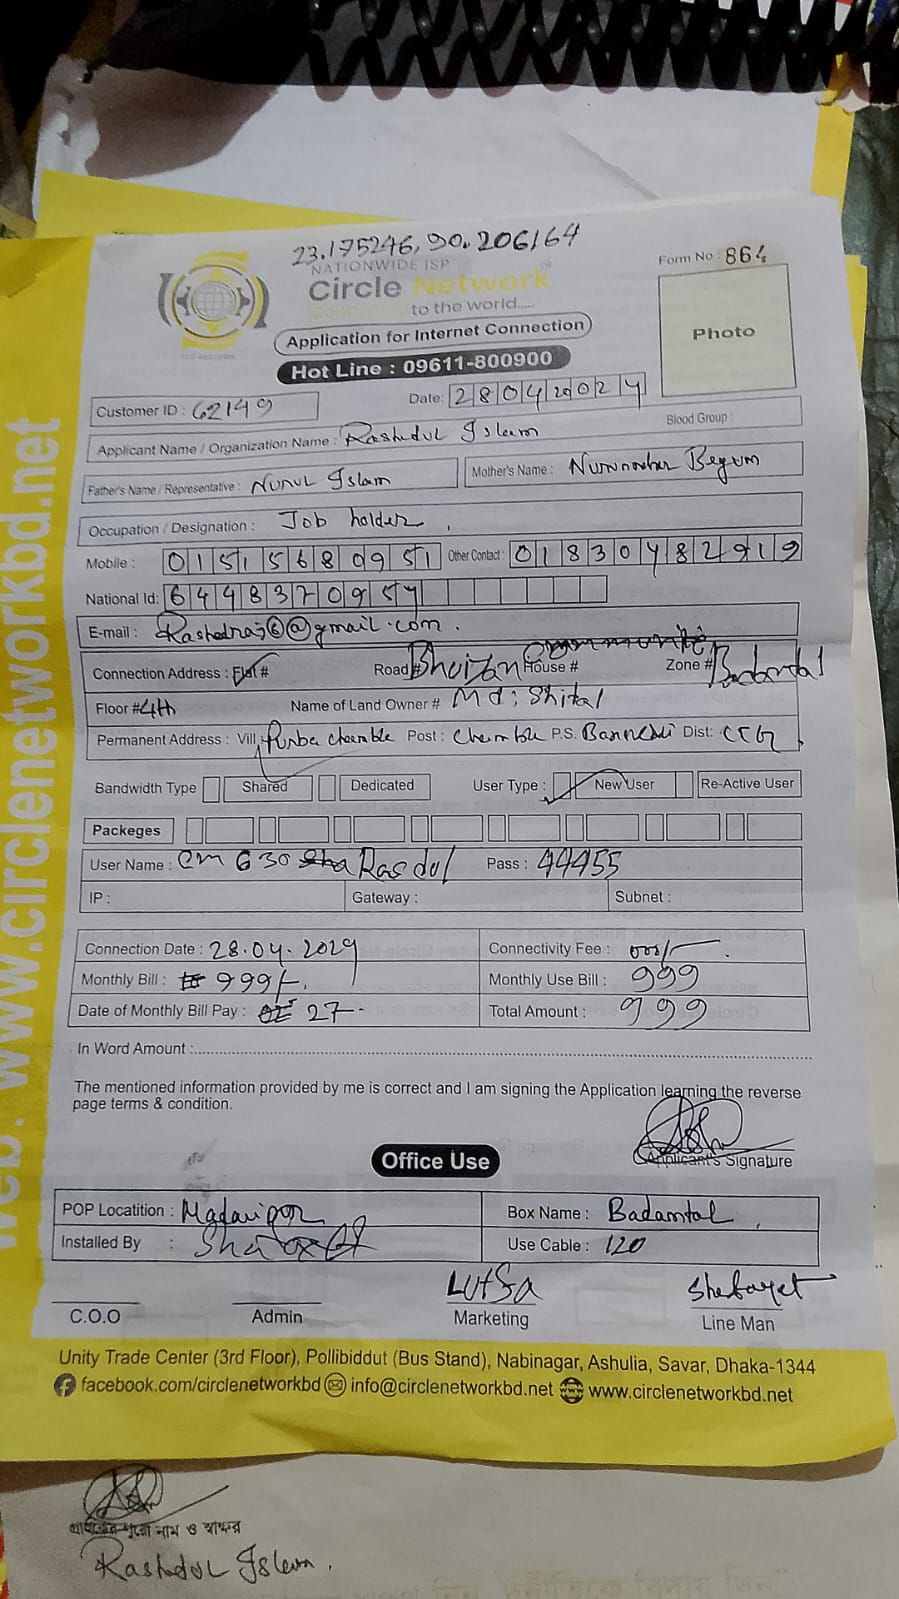 23.175246, 90.206164
NATIONWIDE ISP
Circle Network
Connecting to the world.....
Form No : 864
Photo
Application for Internet Connection
Hot Line : 09611-800900
Customer ID : 62149
Date: 28042024
Applicant Name / Organization Name : Rashidul Islam
Blood Group :
Father's Name / Representative : Nurul Islam
Mother's Name : Nurunnaher Begum
Occupation / Designation : Job holder
Mobile : 01515680951 Other Contact : 01830482919
National Id: 6448370954
E-mail : @gmail.com.
Connection Address : Flat # Road # Bhuiyan House # Zone # Badamtal
Floor # 4th Name of Land Owner # Md: Shikal
Permanent Address : Vill, Purba chamble Post : Chamble P.S. Dist: CTG
Bandwidth Type Shared Dedicated User Type : New User Re-Active User
Packeges
User Name : cm 630 Rasdul Pass : 44455
IP : Gateway : Subnet :
Connection Date : 28.04.2024 Connectivity Fee : 000/-
Monthly Bill : 999/- Monthly Use Bill : 999
Date of Monthly Bill Pay : 27 Total Amount : 999
In Word Amount :
The mentioned information provided by me is correct and I am signing the Application learning the reverse
page terms & condition.
Applicant's Signature
Office Use
POP Locatition : Madaripor Box Name : Badamtal
Installed By : Use Cable : 120
Lutfa Shebayet
C.O.O Admin Marketing Line Man
Unity Trade Center (3rd Floor), Pollibiddut (Bus Stand), Nabinagar, Ashulia, Savar, Dhaka-1344
facebook.com/circlenetworkbd info@circlenetworkbd.net www.circlenetworkbd.net
web: www.circlenetworkbd.net
পুরো নাম ও স্বাক্ষর
Rashidul Islam.